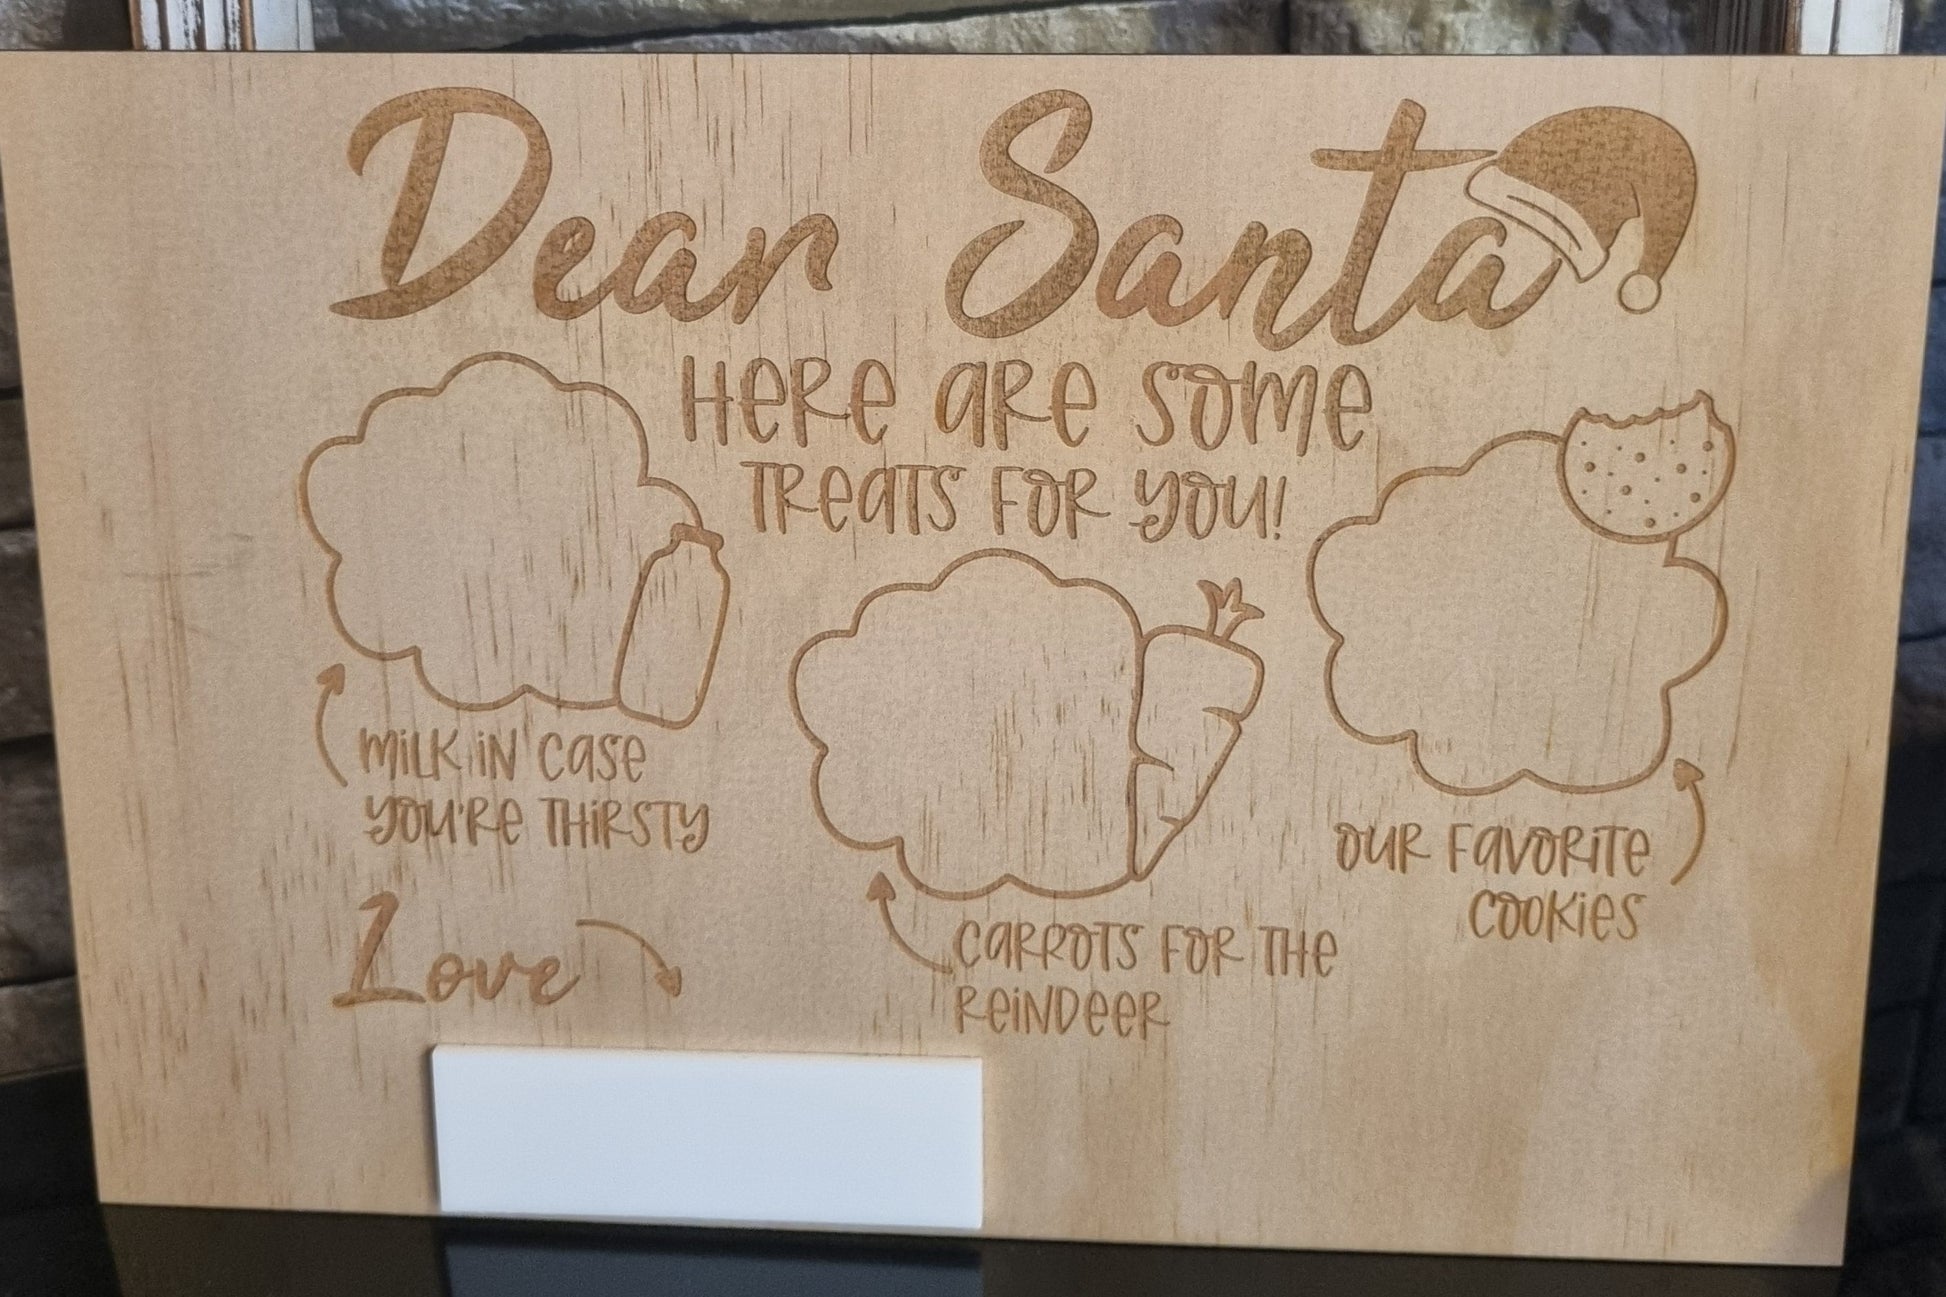 Dear Santa
HERE ARE SOME
TREATS FOR YOU!
MILK IN CASE
YOU'RE THIRSTY
OUR FAVORITE
COOKIES
CARROTS FOR THE
REINDEER
Love